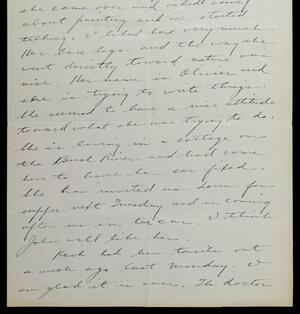 she came over and asked some
about painting and we started
talking. I liked her very much.
Her bare legs and the way she
went directly toward nature was
nice. Her name is Olivier and
she is trying to write things.
She seemed to have a nice attitude
toward what she was trying to do.
She is living in a cottage on
the Bush River and had come
here to have her car fixed.
She has invited us down for
supper next Tuesday and is coming
after us in her car. I think
John will like her.
had her tonsils out
a week ago last Monday. I
am glad it is over. The doctor